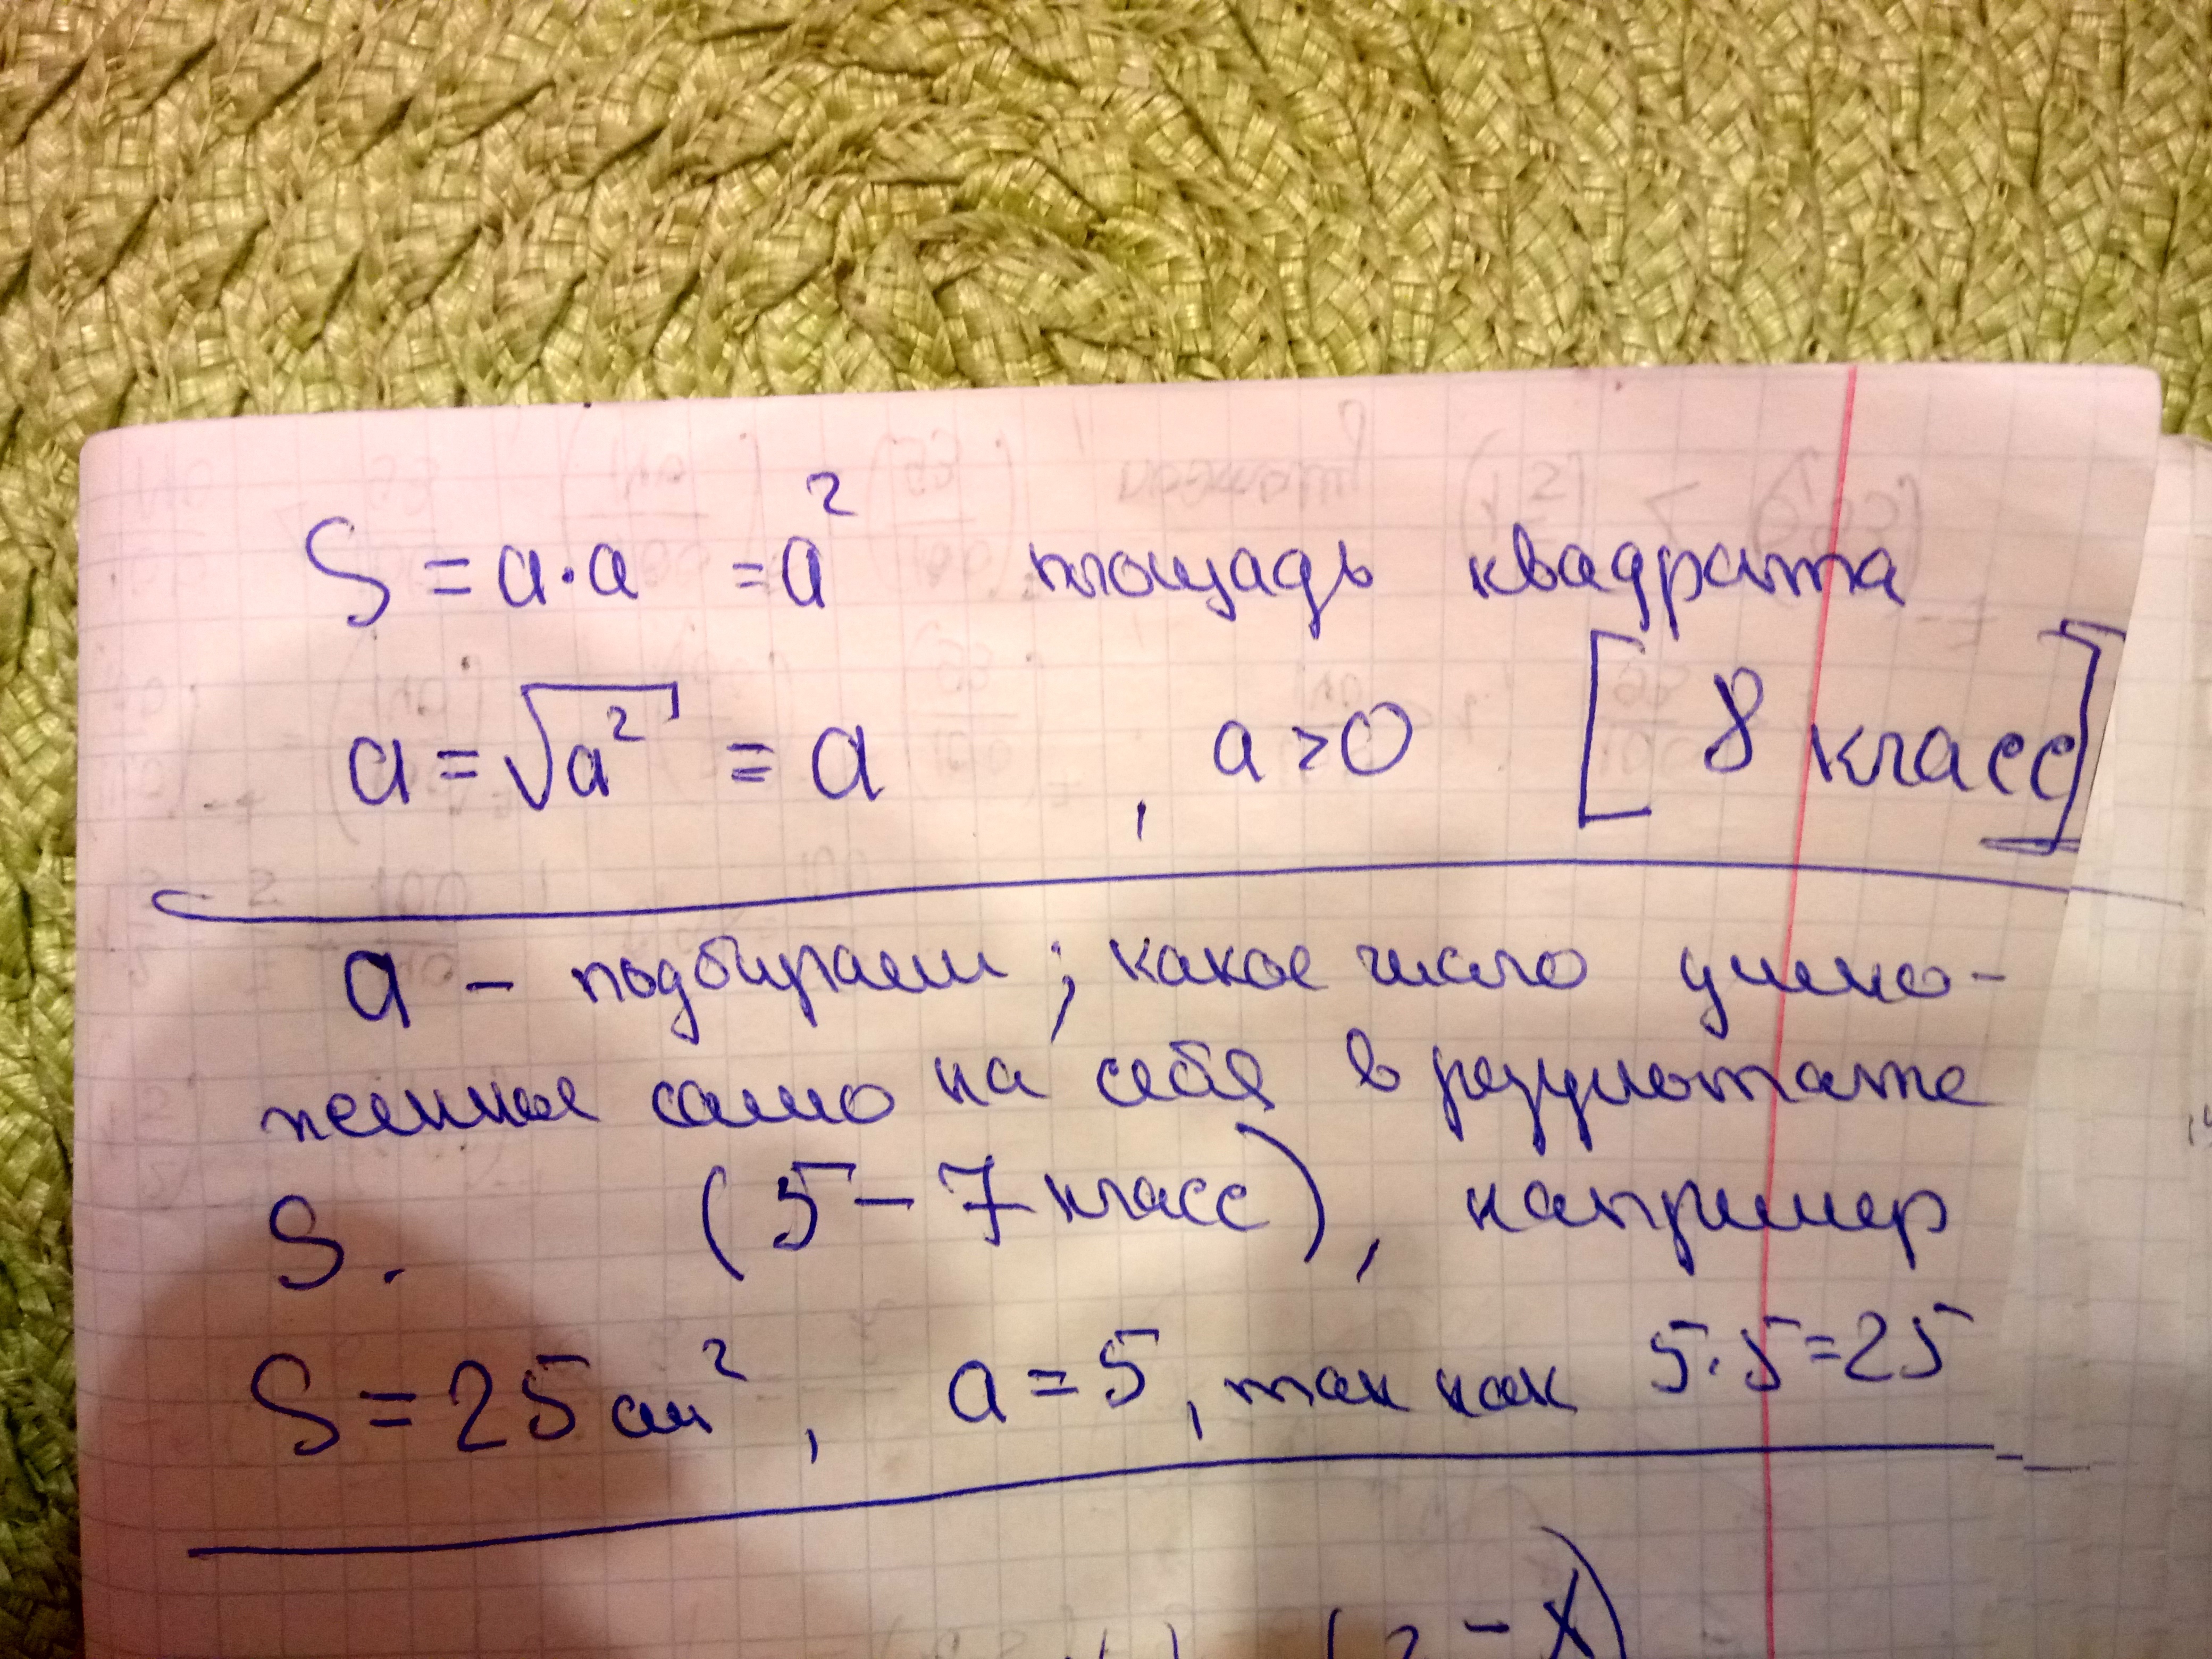 S = a·a = a² площадь квадрата
a = √a² = a , a>0 [8 класс]
a – подбираем; какое число умно-
женное само на себя в результате
S. (5–7 класс), например
S = 25 см², a = 5, так как 5·5=25
– x)